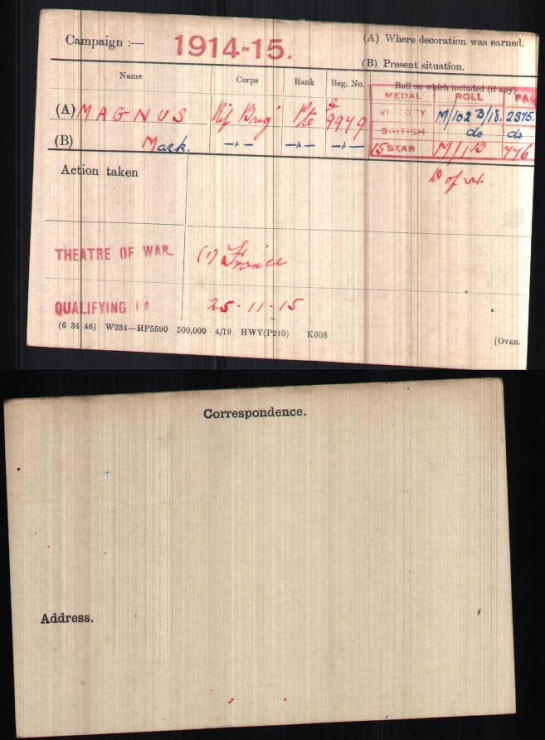 Campaign :— 1914-15. (A) Where decoration was earned.
(B) Present situation.
Name Corps Rank Reg. No. Roll on which included (if any).
MEDAL ROLL
(A) MAGNUS Rif Brig Pte 9979 VICTORY M/102 B/18. 2875.
(B) Mark. —"— —"— —"— BRITISH do do
15 STAR M/1 B 776
Action taken D of W.
THEATRE OF WAR. (1) France
QUALIFYING 25.11.15
(6 34 46) W234—HP5590 500,000 4/19 HWV(P240) K608
[OVER.
Correspondence.
Address.